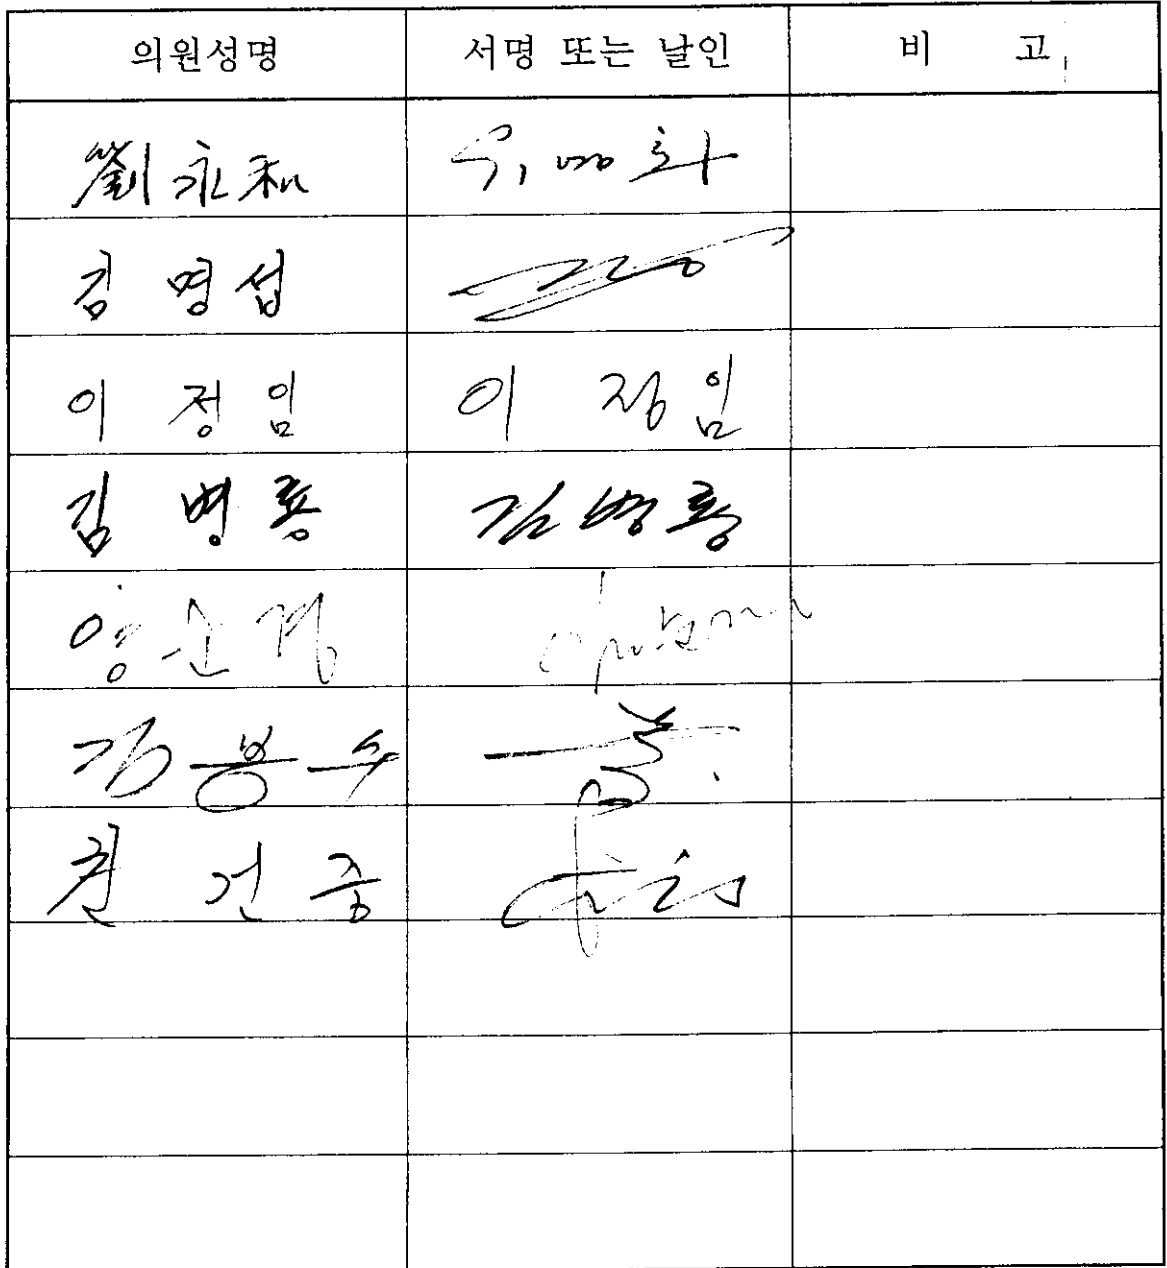 의원성명 서명 또는 날인 비 고
劉永和 유영화
김명섭
이정임 이정임
김병룡 김병룡
양순경
김봉수
권건중